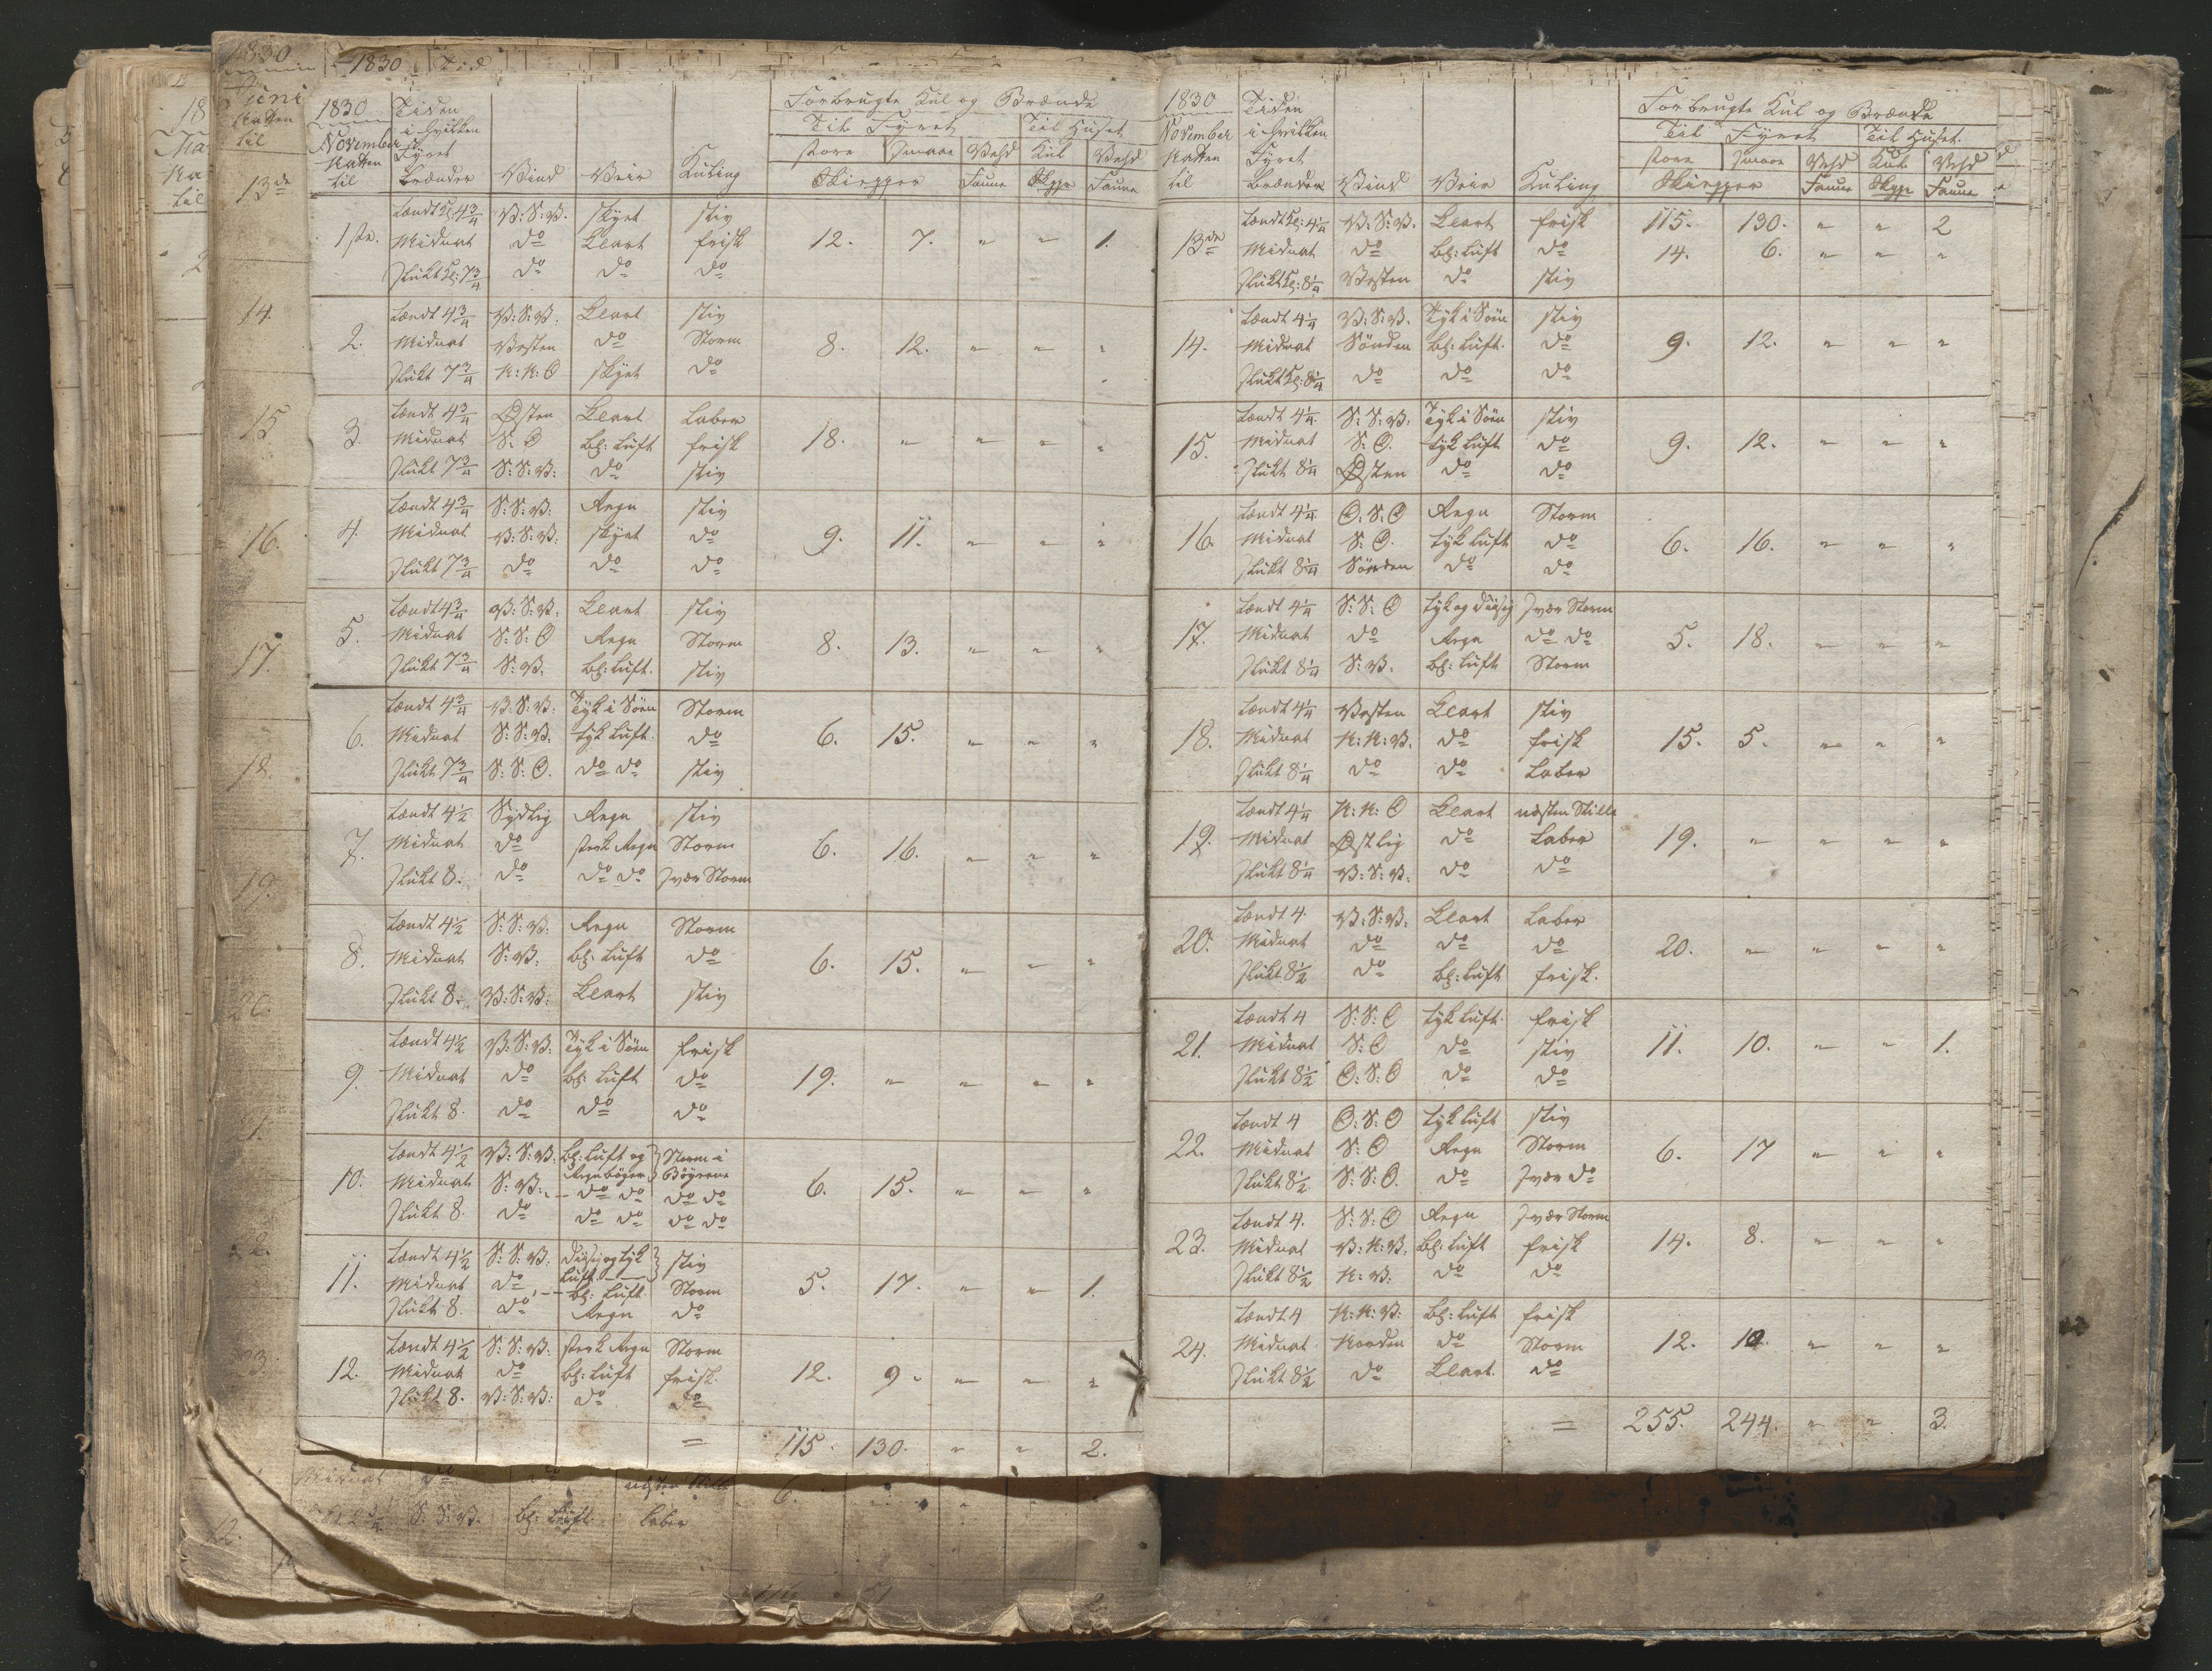 1830 Tiden Forbrugte Kul og Brænde
November i hvilken Til Fyret Til Huset
Natten Fyret store smaae Vehd Kul Vehd
til brænder Vind Veir Kuling Skiepper Faune Skpr Faune
tændt Kl: 4 3/4 V: S: V. skyet stiv
1ste. Midnat do Klart frisk 12. 7. " " 1.
slukt Kl: 7 3/4 do do do
tændt 4 3/4 V: S: V. Klart stiv
2. Midnat Vesten do Storm 8. 12. " " "
slukt 7 3/4 N: N: O skyet do
tændt 4 3/4 Østen Klart Laber
3. Midnat S: O bl: Luft frisk 18. " " " "
slukt 7 3/4 S: S: V: do stiv
tændt 4 3/4 S: S: V: Regn stiv
4. Midnat V: S: V: skyet do 9. 11. " " "
slukt 7 3/4 do do do
tændt 4 3/4 V: S: V: Klart stiv
5. Midnat S: S: O Regn Storm 8. 13. " " "
slukt 7 3/4 S: V. bl: Luft. stiv
tændt 4 3/4 V: S: V: Tyk i Søen Storm
6. Midnat S: S: V. tyk Luft. do 6. 15. " " "
slukt 7 3/4 S: S: O. do do stiv
tændt 4 1/2 Sydlig Regn stiv
7. Midnat do sterk Regn Storm 6. 16. " " "
slukt 8. do do do svær Storm
tændt 4 1/2 S: S: V: Regn Storm
8. Midnat S: V: bl: Luft do 6. 15. " " "
slukt 8. V: S: V: Klart stiv
tændt 4 1/2 V: S: V: Tyk i Søen frisk
9. Midnat do bl: Luft do 19. " " " "
slukt 8. do do do
tændt 4 1/2 V: S: V: bl: Luft og Storm i
Regnbøger Bögerne
10. Midnat S: V: do do do do 6. 15. " " "
slukt 8. do do do do do
tændt 4 1/2 S: S: V: diisig og tyk stiv
Luft
11. Midnat do bl: Luft. Storm 5. 17. " " 1.
slukt 8. do Regn do
tændt 4 1/2 S: S: V: sterk Regn Storm
12. Midnat do bl: Luft frisk. 12. 9. " " "
slukt 8. V: S: V: do do
= 115. 130. " " 2.
1830 Tiden Forbrugte Kul og Brænde
November i hvilken Til Fyret Til Huset.
Natten Fyret store smaae Vehd Kul Vehd
til brænder Vind Veir Kuling Skiepper Faune Skpr Faune
tændt Kl: 4 1/4 V: S: V. Klart frisk 115. 130. " " 2
13de Midnat do bl: Luft do 14. 6. " " "
slukt Kl: 8 1/4 Vesten do stiv
tændt 4 1/4 V: S: V. Tyk i Søen stiv
14. Midnat Sönden bl: Luft. do 9. 12. " " "
slukt Kl: 8 1/4 do do do
tændt 4 1/4 S: S: V. Tyk i Søen stiv
15. Midnat S: O. tyk Luft do 9. 12. " " "
slukt 8 1/4 Østen do do
tændt 4 1/4 O: S: O Regn Storm
16. Midnat S: O. tyk Luft do 6. 16. " " "
slukt 8 1/4 Sönden do do
tændt 4 1/4 S: S: O tyk og diisig svær Storm
17. Midnat do Regn do do 5. 18. " " "
slukt 8 1/4 S: V. bl: Luft Storm
tændt 4 1/4 Vesten Klart stiv
18. Midnat N: N: V. do frisk 15. 5. " " "
slukt 8 1/4 do do Laber
tændt 4 1/4 N: N: O Klart næsten Stille
19. Midnat Østlig do Laber 19. " " " "
slukt 8 1/4 V: S: V. do do
tændt 4 V: S: V: Klart Laber
20. Midnat do do do 20. " " " "
slukt 8 1/2 do bl: Luft frisk.
tændt 4 S: S: O tyk Luft. frisk
21. Midnat S: O do stiv 11. 10. " " 1.
slukt 8 1/2 O: S: O do do
tændt 4 O: S: O tyk Luft stiv
22. Midnat S: O Regn Storm 6. 17 " " "
slukt 8 1/2 S: S: O. do svær do
tændt 4. S: S: O Regn svær Storm
23. Midnat V: N: V: bl: Luft frisk 14. 8. " " "
slukt 8 1/2 N: V: do do
tændt 4 N: N: V: bl: Luft frisk
24. Midnat Norden do Storm 12. 10. " " "
slukt 8 1/2 do Klart. do
= 255. 244. " " 3.
1830
Juni
Natten
til
13de
14.
15.
16.
17.
18.
19.
20.
21.
22.
23.
Midnat do do næsten Stille 6.
S: S: V. bl: Luft. Laber
12.